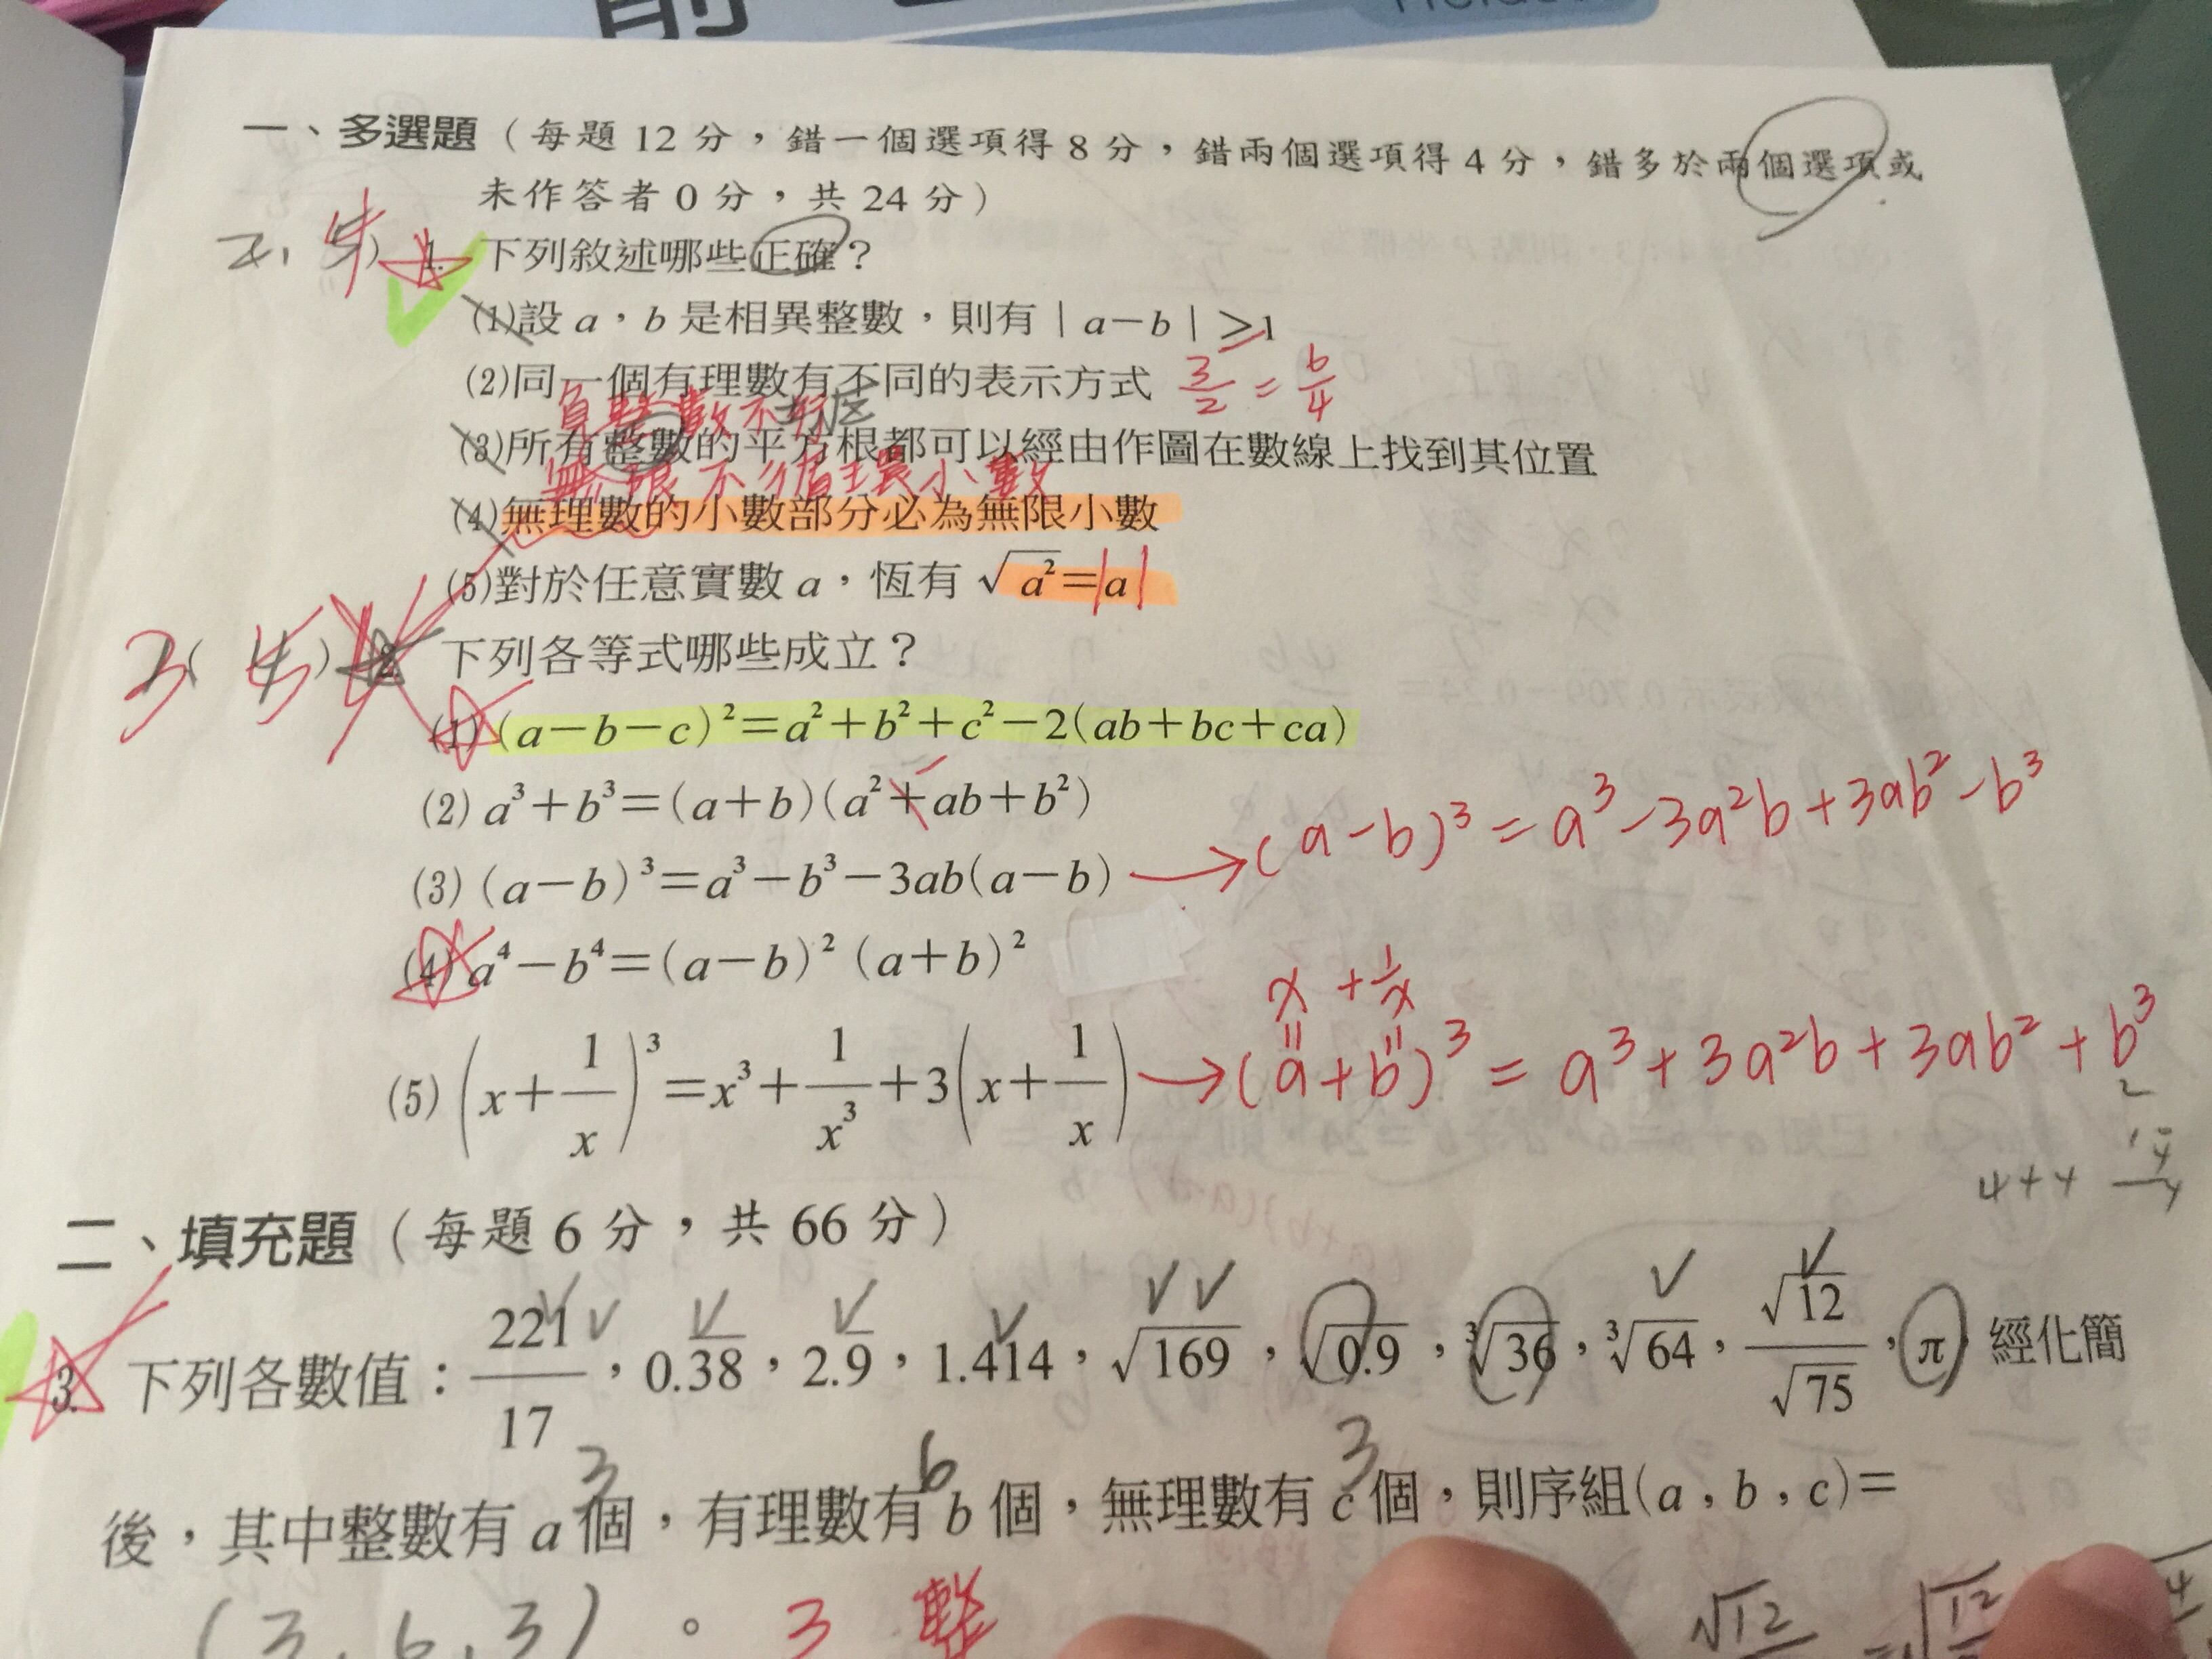 一、多選題（每題 12 分，錯一個選項得 8 分，錯兩個選項得 4 分，錯多於兩個選項或
未作答者 0 分，共 24 分）
1. 下列敘述哪些正確？
(1)設 a，b 是相異整數，則有 | a－b | ≥1
(2)同一個有理數有不同的表示方式 3/2 = 6/4
負整數不行
(3)所有整數的平方根都可以經由作圖在數線上找到其位置
無限不循環小數
(4)無理數的小數部分必為無限小數
(5)對於任意實數 a，恆有 √a²=|a|
2. 下列各等式哪些成立？
(1) (a－b－c)²＝a²＋b²＋c²－2(ab＋bc＋ca)
(2) a³＋b³＝(a＋b)(a²＋ab＋b²)
(3) (a－b)³＝a³－b³－3ab(a－b) → (a-b)³ = a³-3a²b+3ab²-b³
(4) a⁴－b⁴＝(a－b)² (a＋b)²
x + 1/x
(5) (x＋1/x)³＝x³＋1/x³＋3(x＋1/x) → (a+b)³ = a³+3a²b+3ab²+b³
4+4
二、填充題（每題 6 分，共 66 分）
3. 下列各數值：221/17，0.3̅8̅，2.9̅，1.414，√169，√0.9，³√36，³√64，√12/√75，π，經化簡
3 6 3
後，其中整數有 a 個，有理數有 b 個，無理數有 c 個，則序組(a , b , c)＝
(3, 6, 3)。 3 整 √12 √12